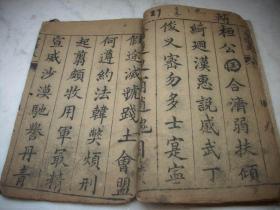 桓公匡合濟弱扶傾
綺廻漢惠說感武丁
俊乂密勿多士寔寧
假途滅虢踐土會盟
何遵約法韓獘煩刑
起翦頗牧用軍最精
宣威沙漠馳譽丹青